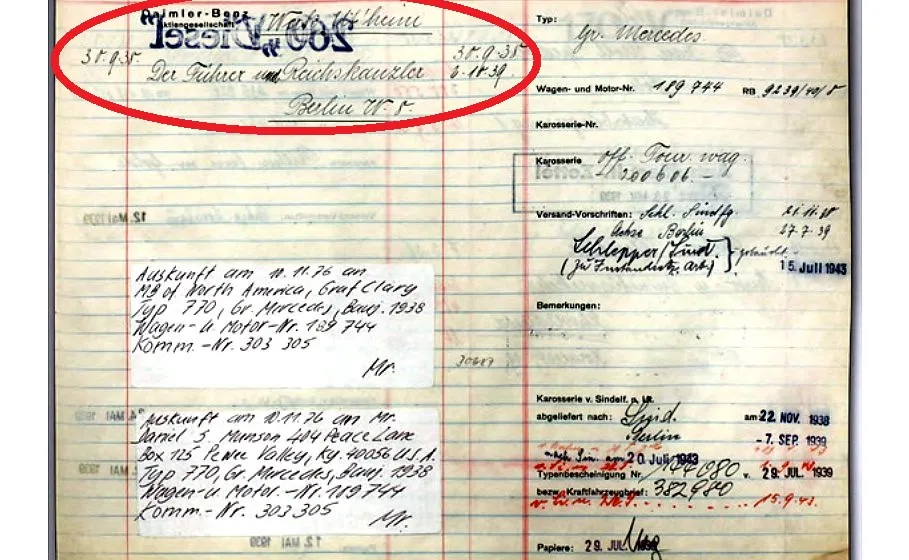 Daimler-Benz
Aktiengesellschaft
"260 Diesel"
30.9.38. 30.9.38
Der Führer und Reichskanzler
Berlin W. 8.
12. Mai 1939
Auskunft am 10.11.76 an
MB of North America, Graf Clary
Typ 770, Gr. Mercedes, Bauj. 1938
Wagen- u. Motor-Nr. 189 744
Komm.-Nr. 303 305
Mr.
Auskunft am 10.11.76 an Mr.
Daniel S. Munson 404 Peace Lane
Box 125 Pewee Valley, Ky. 40056 U.S.A.
Typ 770, Gr. Mercedes, Bauj. 1938
Wagen- u. Motor.-Nr. 189 744
Komm.-Nr. 303 305
Mr.
Typ:
Gr. Mercedes
Wagen- und Motor-Nr. 189 744 RB
Karosserie-Nr.
Karosserie off. Tour. wag.
- 200606. -
Versand-Vorschriften: Schl. Sindfg. 21.11.38
Achse Berlin 27.7.39
Schlepper/Sind.
(zu Instandsetz. Arb.)
15. Juli 1943
Bemerkungen:
Karosserie v. Sindelf.
abgeliefert nach: Sind. am: 22. NOV. 1938
Berlin -7. SEP. 1939
20. Juli 1943
Typenbescheinigung Nr. v. 29. JUL. 1939
bezw. Kraftfahrzeugbrief: 382980
15.9.43.
Papiere: 29. JUL. 1939